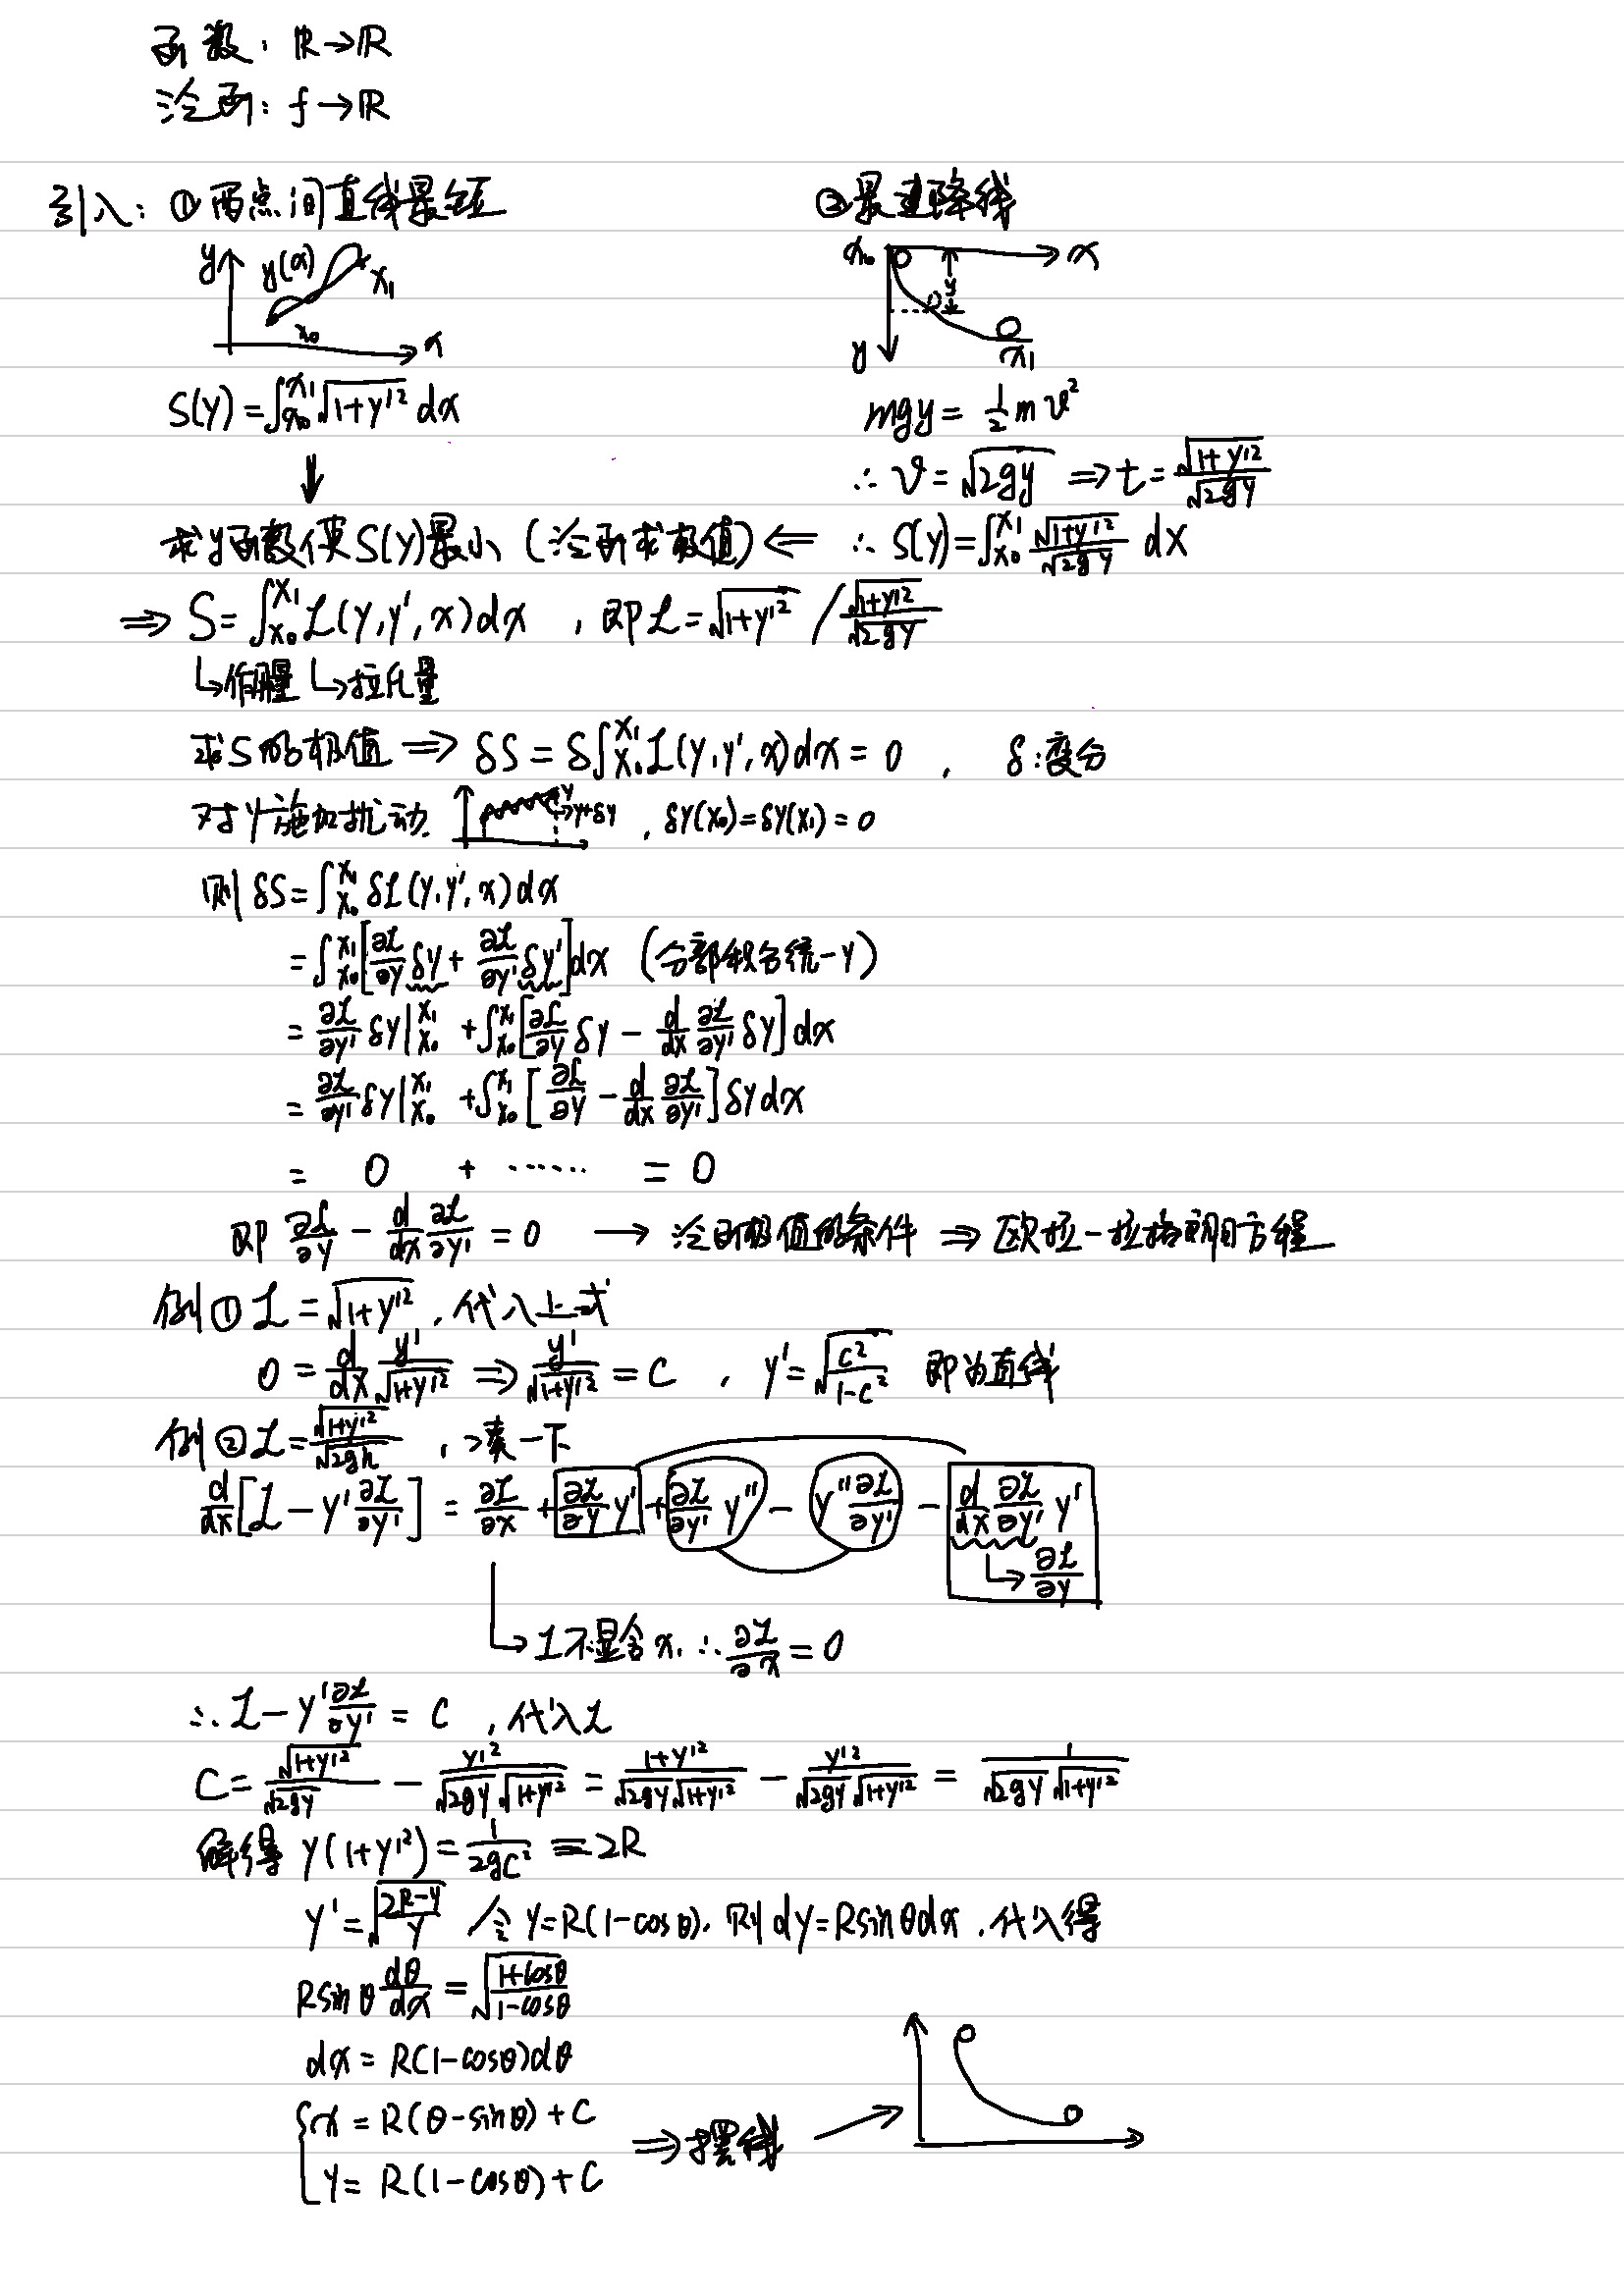 函数: ℝ→ℝ
泛函: f→ℝ
引入: ①两点间直线最短
y
y(x)
x₁
x₀
x
S(y)=∫_{x₀}^{x₁}√(1+y'²) dx
②最速降线
x₀ x
y
y x₁
mgy = 1/2 m v²
∴ v=√(2gy) ⇒ t=√(1+y'²)/√(2gy)
求y函数使S(y)最小 (泛函求极值) ⇐ ∴ S(y)=∫_{x₀}^{x₁} √(1+y'²)/√(2gy) dx
⇒ S=∫_{x₀}^{x₁} ℒ(y,y',x)dx , 即ℒ=√(1+y'²) / √(1+y'²)/√(2gy)
↳作用量 ↳拉氏量
求S的极值 ⇒ δS = δ∫_{x₀}^{x₁} ℒ(y,y',x)dx = 0 , δ:变分
对y施加扰动. y y+δy , δy(x₀)=δy(x₁)=0
则 δS=∫_{x₀}^{x₁} δℒ(y,y',x)dx
=∫_{x₀}^{x₁}[∂ℒ/∂y δy + ∂ℒ/∂y' δy']dx (分部积分统一y)
= ∂ℒ/∂y' δy|_{x₀}^{x₁} +∫_{x₀}^{x₁}[∂ℒ/∂y δy - d/dx ∂ℒ/∂y' δy]dx
= ∂ℒ/∂y' δy|_{x₀}^{x₁} +∫_{x₀}^{x₁}[∂ℒ/∂y - d/dx ∂ℒ/∂y']δy dx
= 0 + ...... = 0
即 ∂ℒ/∂y - d/dx ∂ℒ/∂y' = 0 → 泛函极值的条件 ⇒ 欧拉-拉格朗日方程
例① ℒ=√(1+y'²) , 代入上式
0 = d/dx y'/√(1+y'²) ⇒ y'/√(1+y'²) = C , y'=√(c²/(1-c²)) 即为直线
例② ℒ=√(1+y'²)/√(2gh) , 凑一下
d/dx[ℒ-y' ∂ℒ/∂y'] = ∂ℒ/∂x + ∂ℒ/∂y y' + ∂ℒ/∂y' y'' - y'' ∂ℒ/∂y' - d/dx ∂ℒ/∂y' y'
↳ ∂ℒ/∂y
↳ℒ不显含x, ∴ ∂ℒ/∂x = 0
∴ ℒ-y' ∂ℒ/∂y' = C , 代入ℒ
C= √(1+y'²)/√(2gy) - y'²/(√(2gy)√(1+y'²)) = (1+y'²)/(√(2gy)√(1+y'²)) - y'²/(√(2gy)√(1+y'²)) = 1/(√(2gy)√(1+y'²))
解得 y(1+y'²)= 1/(2gC²) ≡ 2R
y'=√((2R-y)/y) 令 y=R(1-cosθ), 则 dy=Rsinθdx , 代入得
Rsinθ dθ/dx = √((1+cosθ)/(1-cosθ))
dx = R(1-cosθ)dθ
{x = R(θ-sinθ)+C
y= R(1-cosθ)+C ⇒摆线